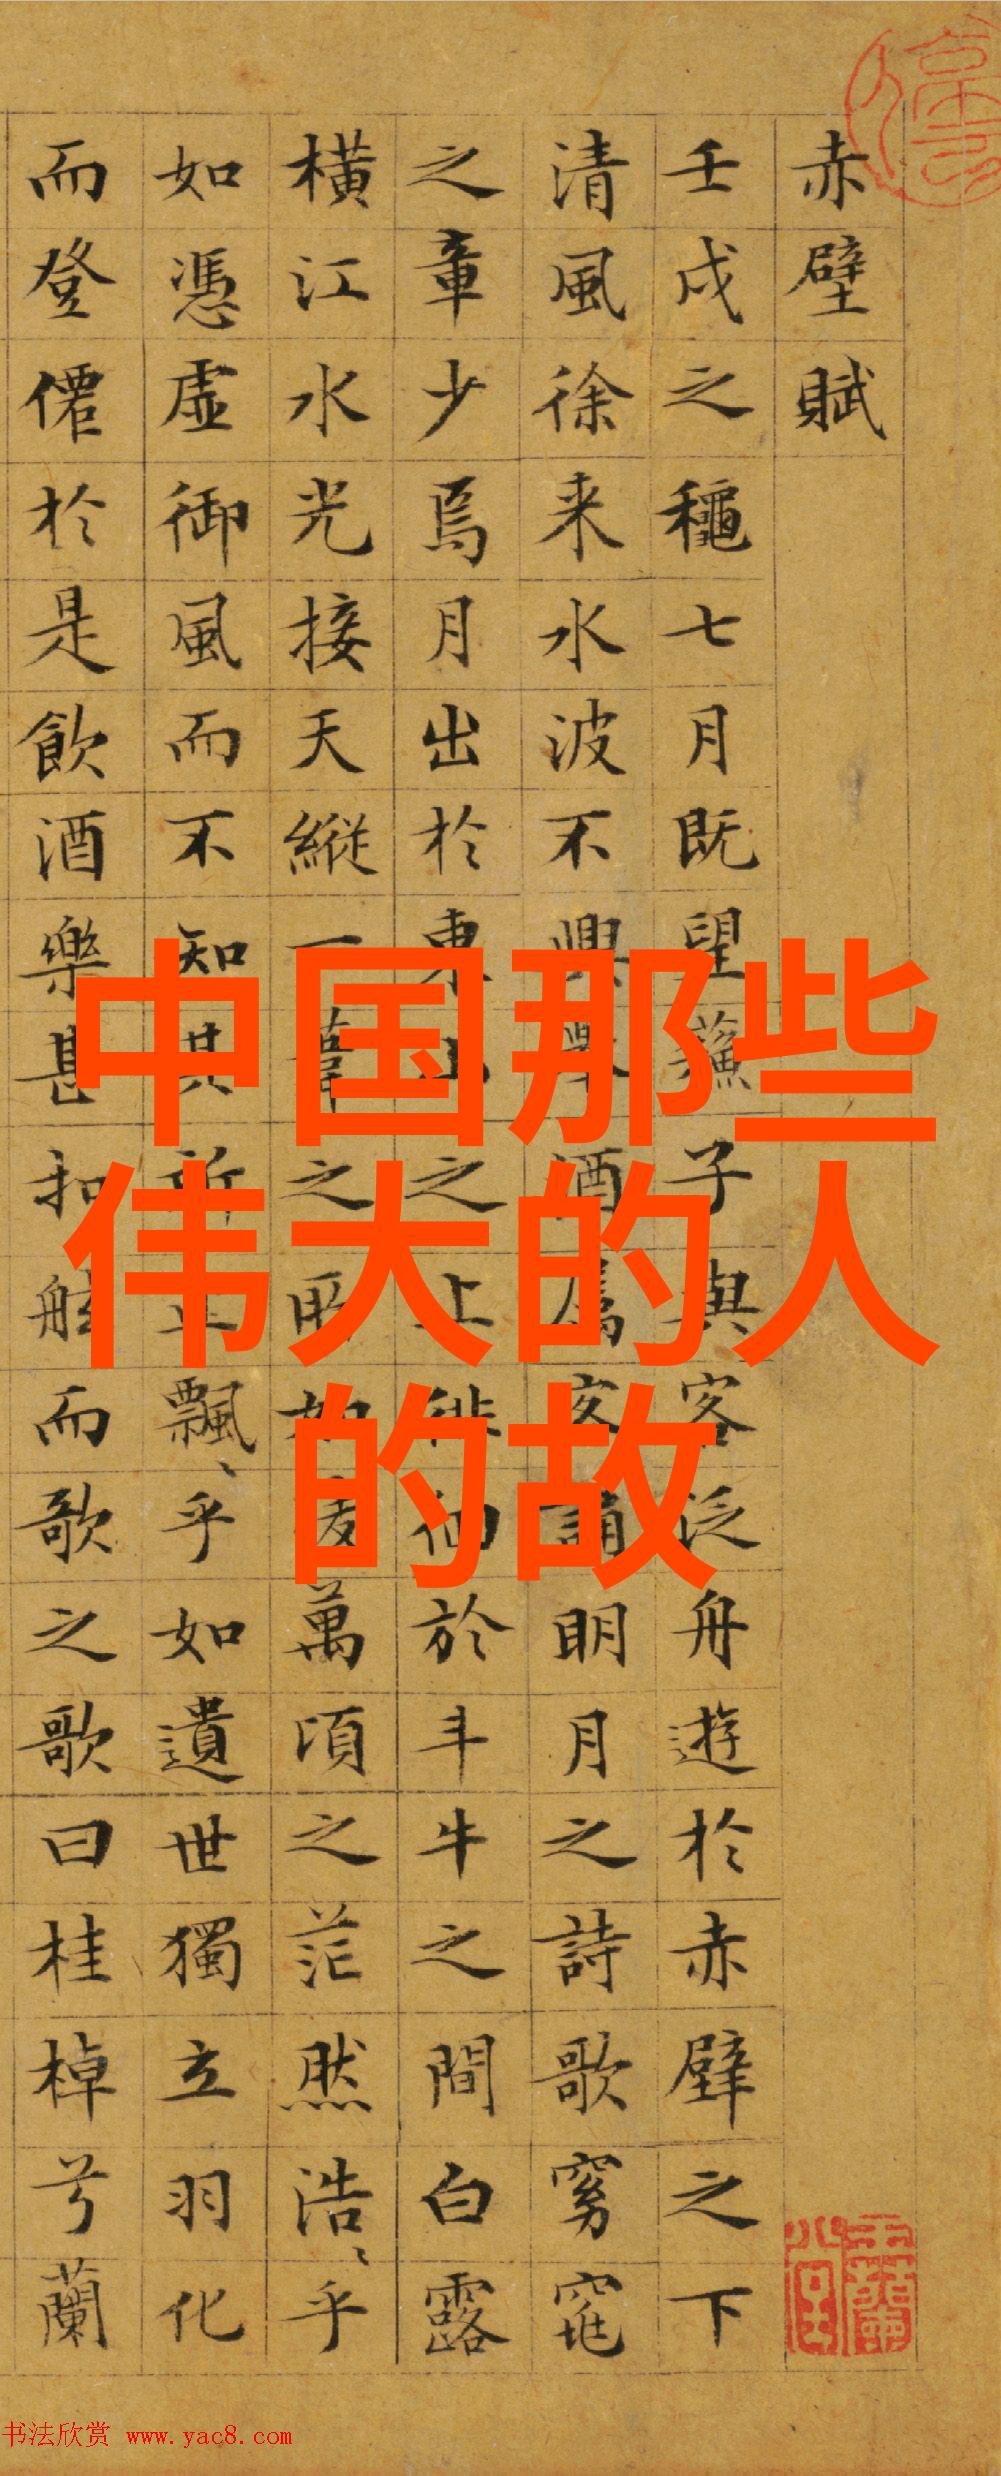 赤壁賦
壬戌之龝七月既望蘓子與客泛舟遊於赤壁之下
清風徐来水波不興舉酒属客誦明月之詩歌窈窕
之章少焉月出於東山之上徘徊於斗牛之間白露
横江水光接天縱一葦之所如凌萬頃之茫然浩、乎
如憑虚御風而不知其所止飄、乎如遺世獨立羽化
而登僊於是飲酒樂甚扣舷而歌之歌曰桂棹兮蘭
中国那些
伟大的人
的故
书法欣赏 www.yac8.com